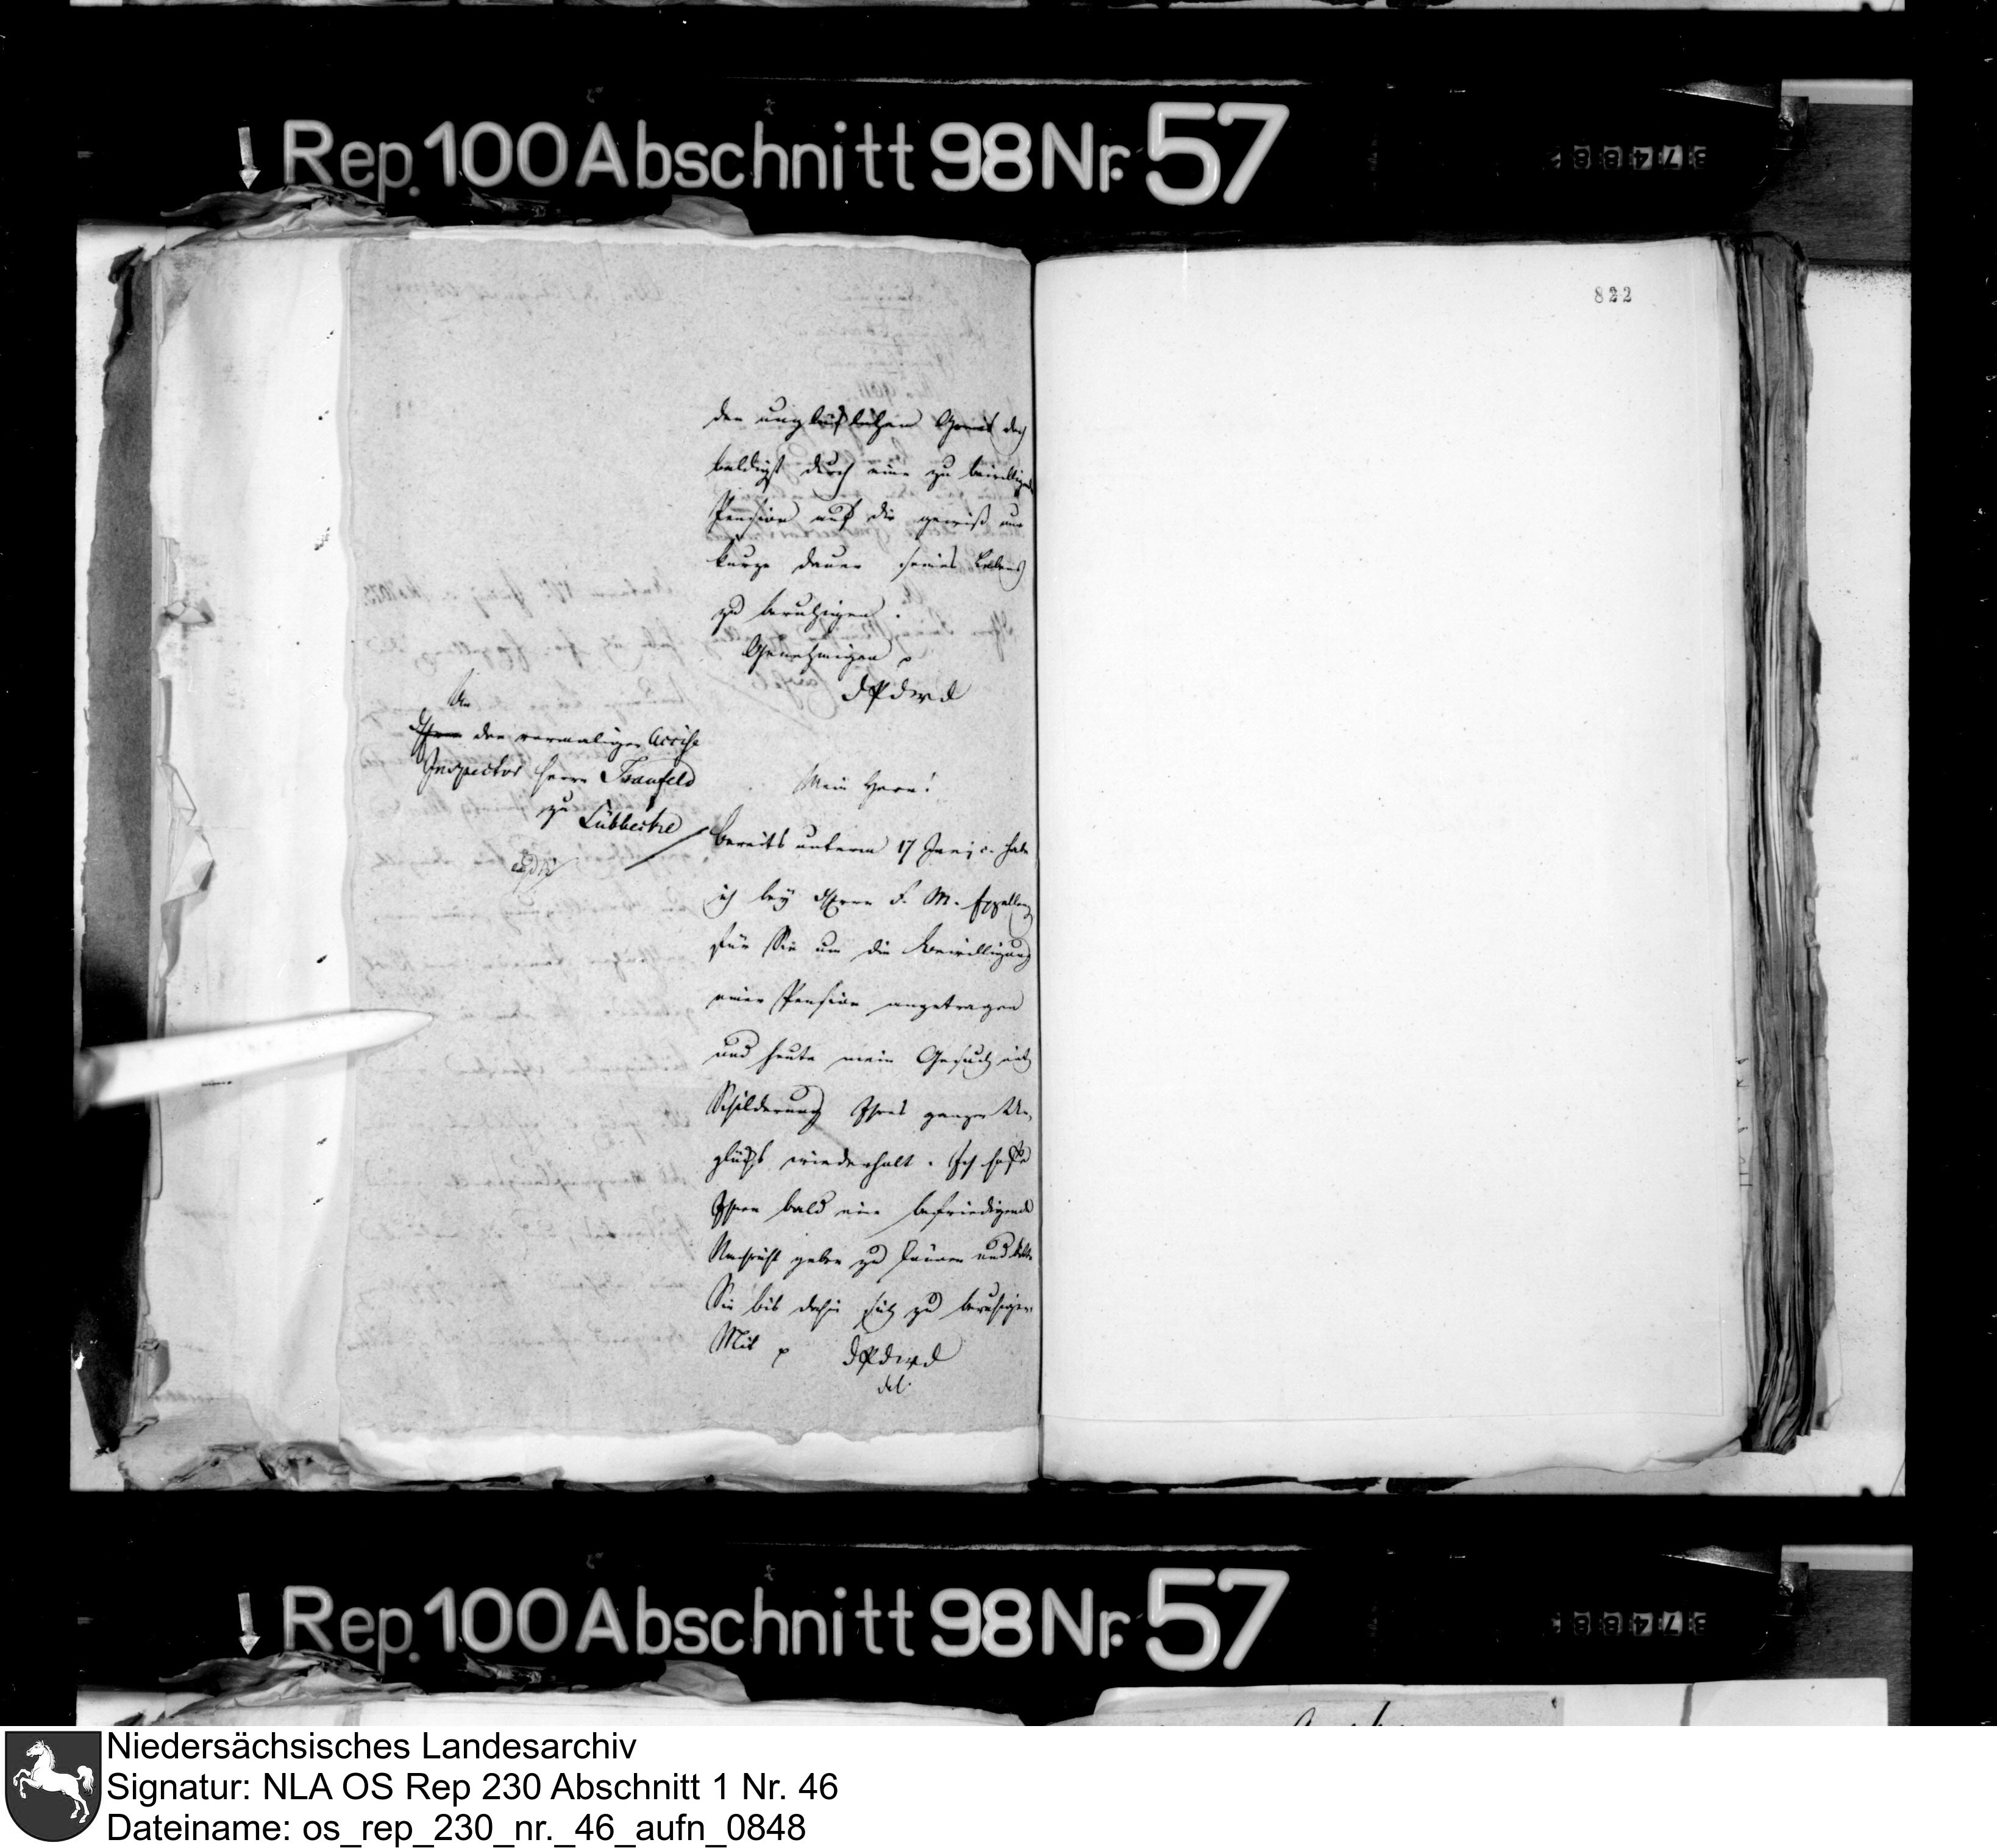 Rep. 100 Abschnitt 98 Nr. 57
822
den unglücklichen Greis doch
baldigst durch eine zu bewilligende
Pension auf die gewiß nur
kurze Dauer seines Lebens
zu beruhigen.
Genehmigen p
An
den vormaligen Accise
Inspector Herrn Traufeld
zu Lübbecke
Mein Herr!
Bereits unterm 17 Junj c. habe
ich bey Herrn F. M. Excellenz
für Sie um die Bewilligung
einer Pension angetragen
und heute mein Gesuch mit
Schilderung Ihres ganzen Un-
glücks wiederholt. Ich hoffe
Ihnen bald eine befriedigende
Nachricht geben zu können und bitte
Sie bis dahin sich zu beruhigen
Mit p
Rep. 100 Abschnitt 98 Nr. 57
Niedersächsisches Landesarchiv
Signatur: NLA OS Rep 230 Abschnitt 1 Nr. 46
Dateiname: os_rep_230_nr._46_aufn_0848